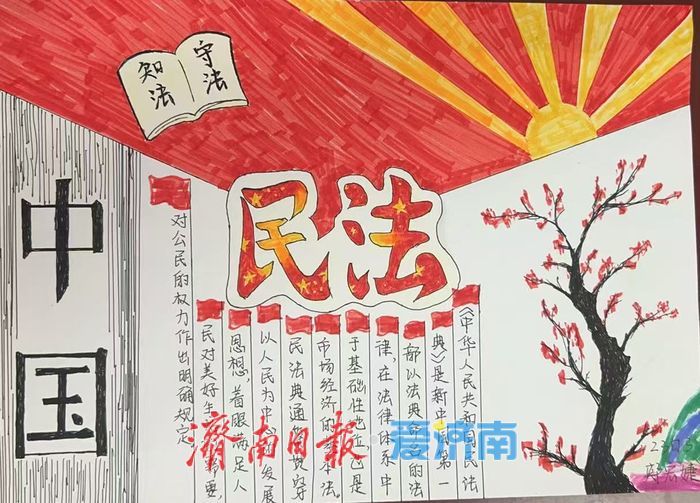 知法
守法
中国
民法
《中华人民共和国民法
典》是新中国第一
部以法典命名的法
律,在法律体系中
于基础性地位,也是
市场经济的基本法。
民法典通篇贯穿
以人民为中心的发展
思想,着眼满足人
民对美好生 需要,
对公民的权力作出明确规定
济南日报·爱济南